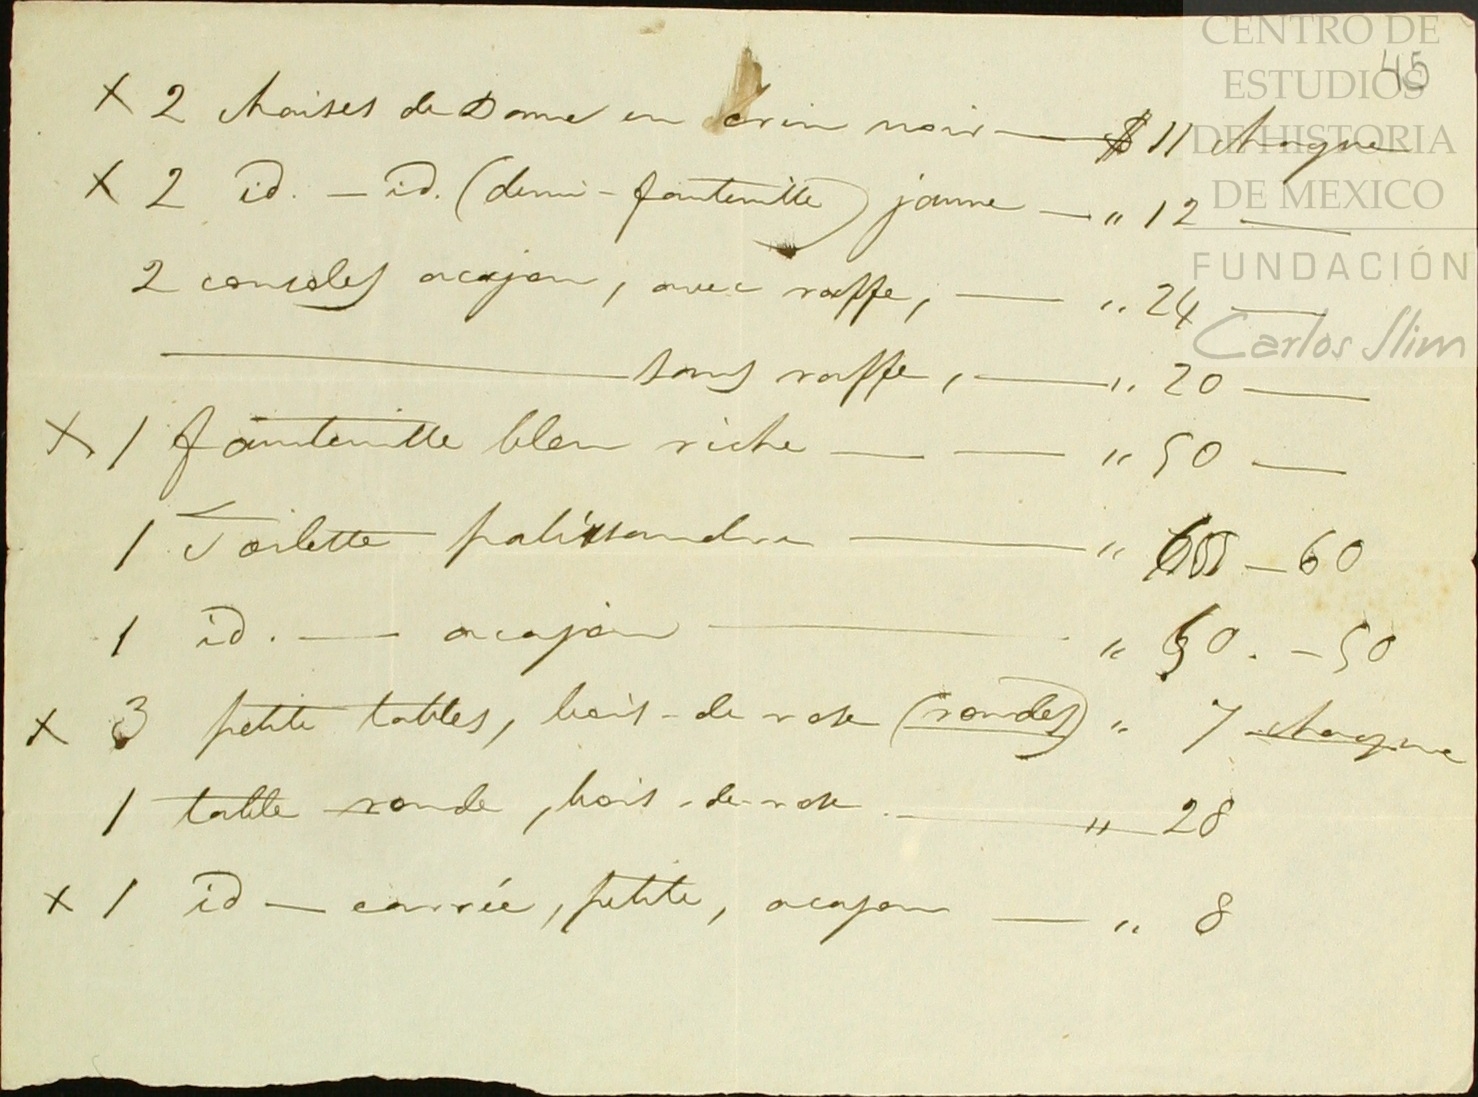 CENTRO DE
ESTUDIOS
DE HISTORIA
DE MEXICO
FUNDACIÓN
Carlos Slim
45
X 2 chaises de Dame en crin noir — $ 11 chaque
X 2 id. — id. (demi-fauteuille) jaune — " 12 —
2 consoles acajou, avec — " 24 —
— sans — " 20 —
X 1 fauteuille bleu riche — — " 50 —
1 Toilette palissandre — " — 60
1 id. — acajou — " 50. — 50
X 3 petite tables, bois-de-rose (rondes) " 7 chaque
1 table ronde, bois-de-rose — " — 28
X 1 id — carrée, petite, acajou — " 8